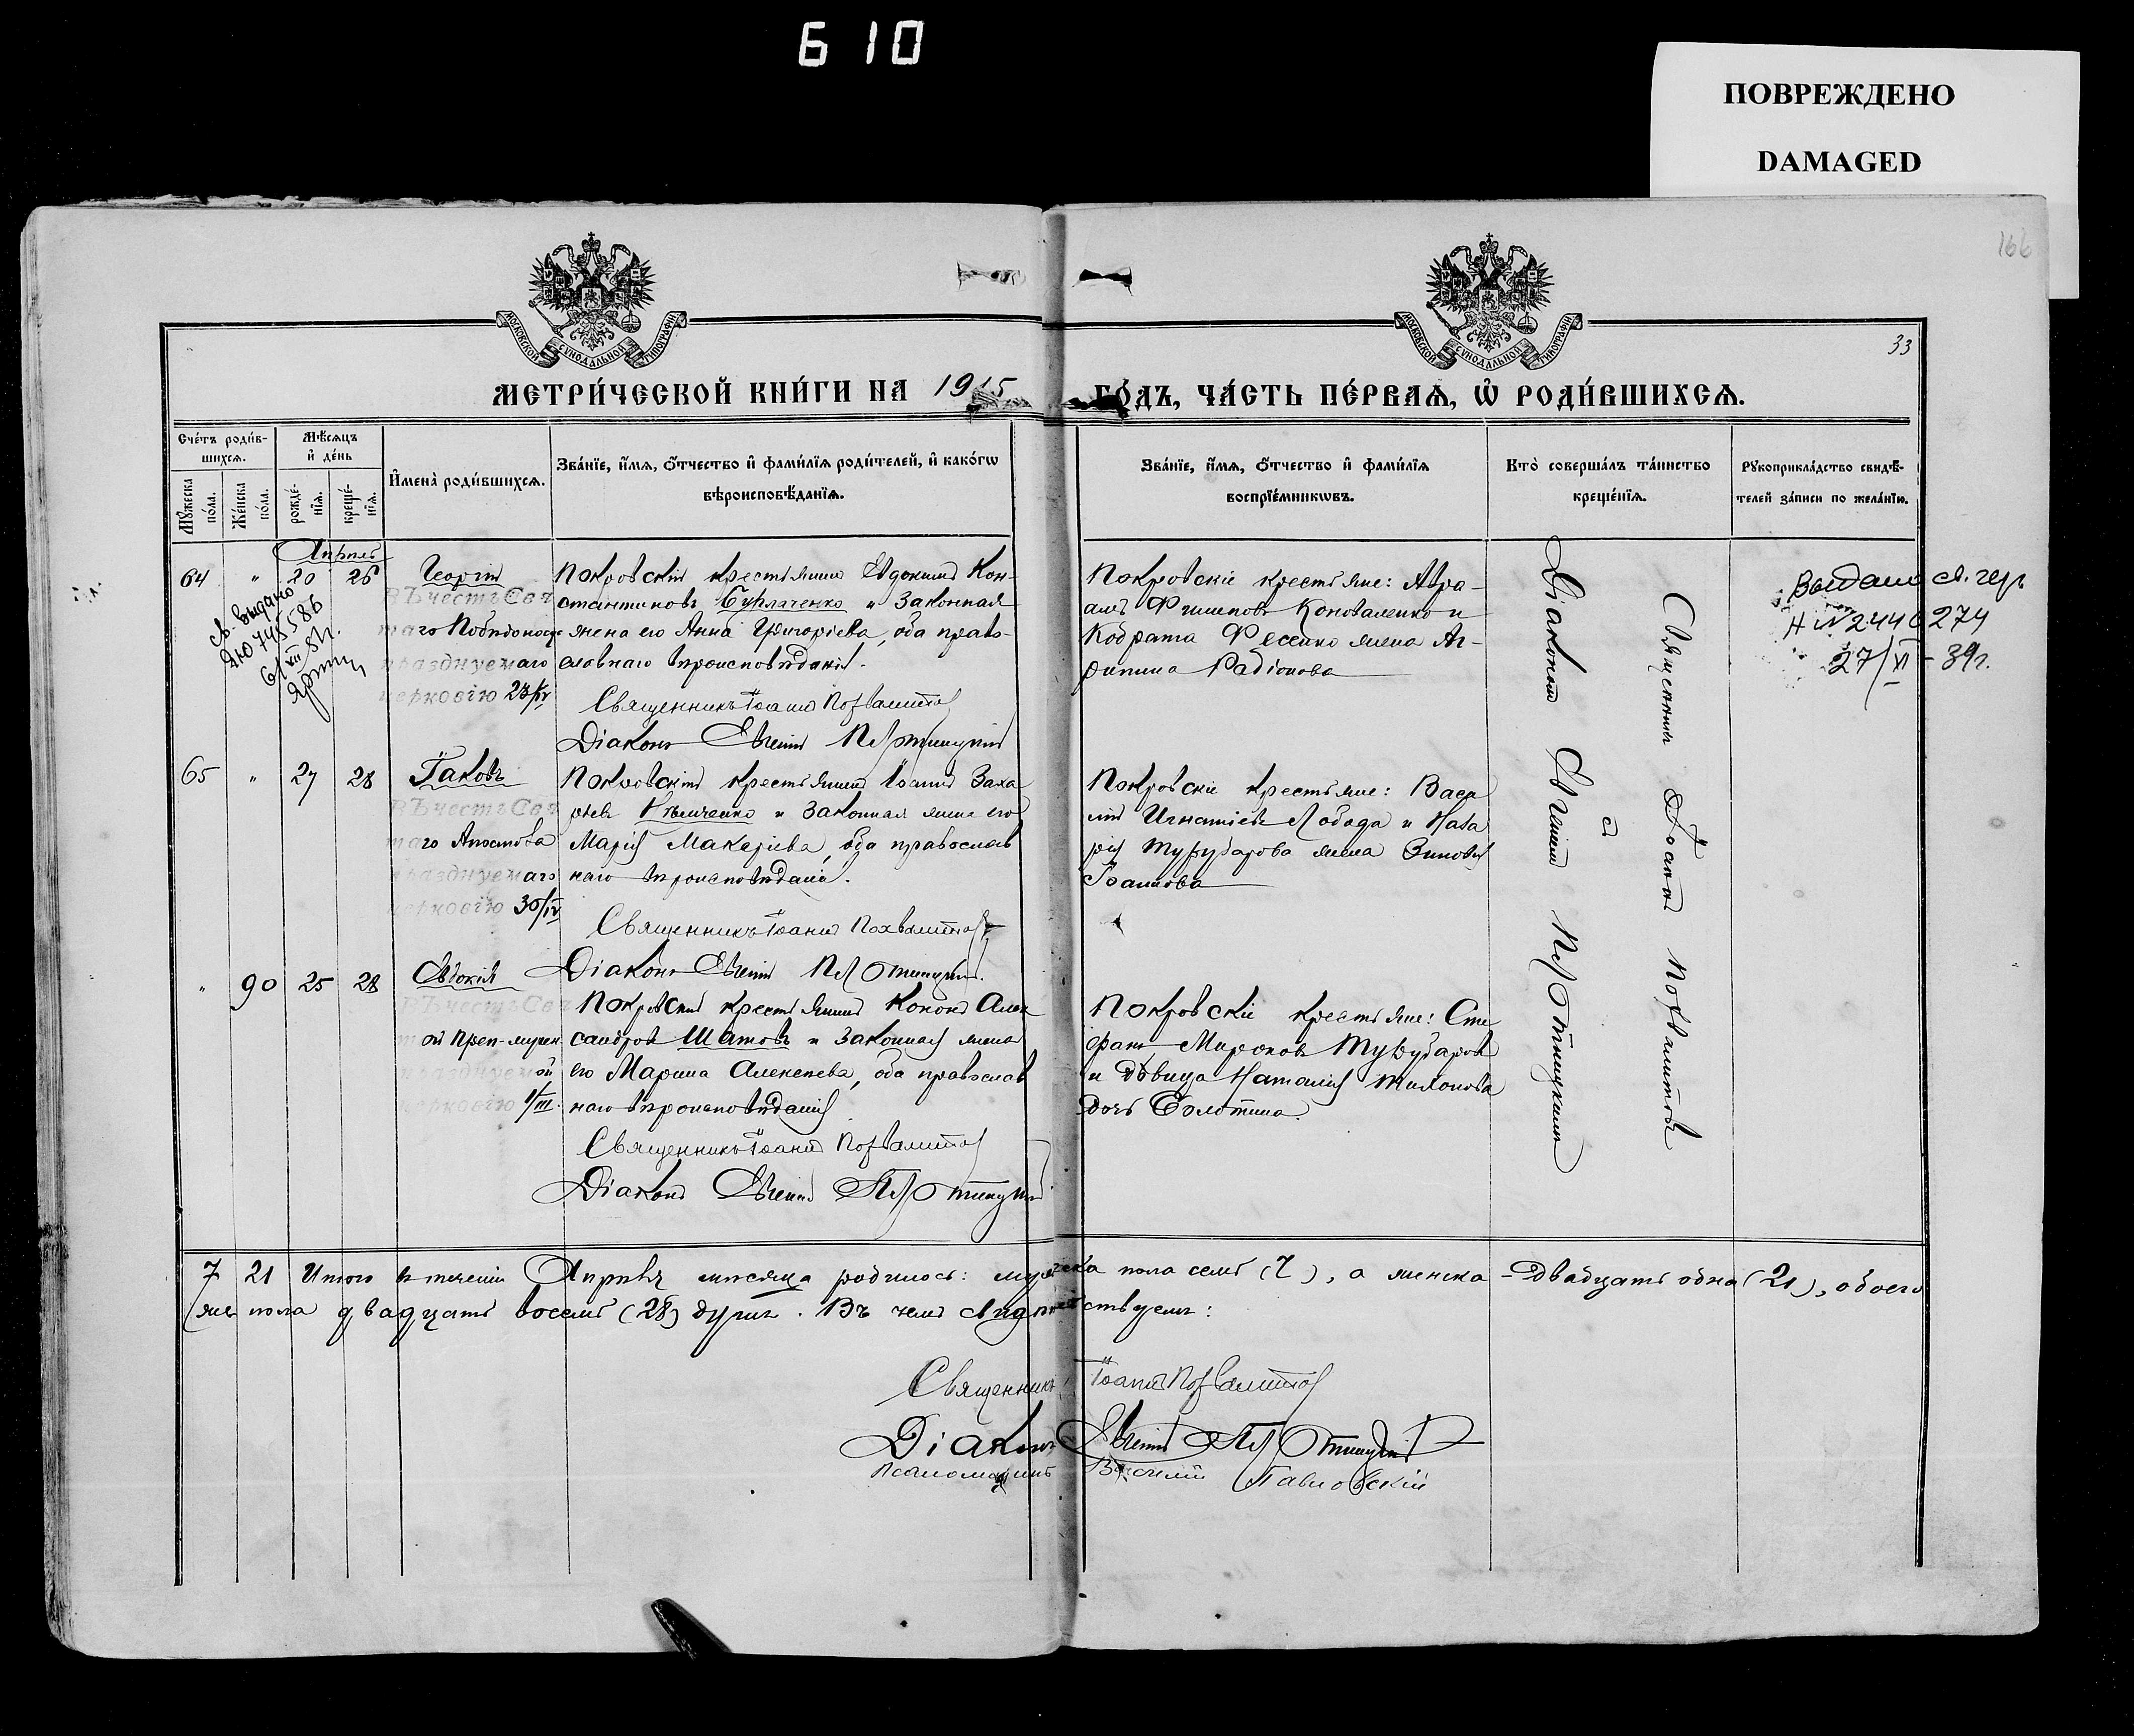 6 10
ПОВРЕЖДЕНО
DAMAGED
166
33
МОСКОВСКОЙ СУНОДАЛЬНОЙ ТИПОГРАФІИ
МОСКОВСКОЙ СУНОДАЛЬНОЙ ТИПОГРАФІИ
МЕТРИ́ЧЕСКОЙ КНИ́ГИ НА 1915 ГО́ДЪ, ЧА́СТЬ ПЕ́РВАѦ, Ѡ҆ РОДИ́ВШИХСѦ.
Сче́тъ роди́в-
шихсѧ.
Мѣ́сѧцъ
и҆ де́нь
Мꙋ́жеска по́ла.
Же́нска по́ла.
рожде́-
нїѧ.
креще́-
нїѧ.
И҆мена̀ роди́вшихсѧ.
Зва́нїе, и҆́мѧ, о҆́тчество и҆ фами́лїѧ роди́телей, и҆ како́гѡ
вѣроисповѣ́данїѧ.
Зва́нїе, и҆́мѧ, о҆́тчество и҆ фами́лїѧ
воспрїе́мникѡвъ.
Кто̀ соверша́лъ та́инство
креще́нїѧ.
Рꙋкоприкла́дство свидѣ́-
телей за́писи по жела́нїю.
Апрѣль
64 " 20 26 Георгій
Въ честь Свя
таго Побѣдонос
празднуемаго
церковію 23/IV
св. выдано
ДЮ 745586
6/XII 51г.
Покровскій крестьянинъ Евдокимъ Кон-
стантиновъ Бурлаченко и законная
жена его Анна Григоріева, оба право-
славнаго вѣроисповѣданія.
Священникъ Іоаннъ Похвалитов
Діаконъ Евгеній
Покровскіе крестьяне: Авра-
амъ Филиповъ Коноваленко и
Кодрата Фесенко жена Аг-
рипина Радіонова
Выдано св. гер
Н № 2440274
27/VI - 39г.
65 " 27 28 Іаковъ
Въ честь Свя
таго Апостола
празднуемаго
церковію 30/IV
Покровскій крестьянинъ Іоаннъ Заха
ріевъ и законная жена его
Марія Макаріева, оба православ
наго вѣроисповѣданія.
Священникъ Іоаннъ Похвалитов
Діаконъ Евгеній
Покровскіе крестьяне: Васи
лій Игнатіевъ Лобода и Наза
рія Турубарова жена Зиновія
Іоаннова
" 90 25 28 Евдокія
Въ честь Свя
той Преп-мучен
празднуемой
церковію 1/III.
Покровскій крестьянинъ Кононъ Алек
сандровъ Шатовъ и законная жена
его Марина Алексеева, оба православ
наго вѣроисповѣданія
Священникъ Іоаннъ Похвалитов
Діаконъ Евгеній
Покровскіе крестьяне: Сте
фанъ Мироновъ Турубаровъ
и дѣвица Наталія Тихонова
дочь Болотина.
Священникъ Іоаннъ Похвалитовъ
съ
Діакономъ Евгеніемъ
7 21 Итого въ теченіи Апрѣля мѣсяца родилось: мужеска пола семь (7), а женска - двадцать одна (21), обоего
же пола двадцать восемь (28) душъ. Въ чемъ свидѣтельствуемъ:
Священникъ Іоаннъ Похвалитов
Діаконъ Евгеній
Псаломщикъ Василій Павловскій